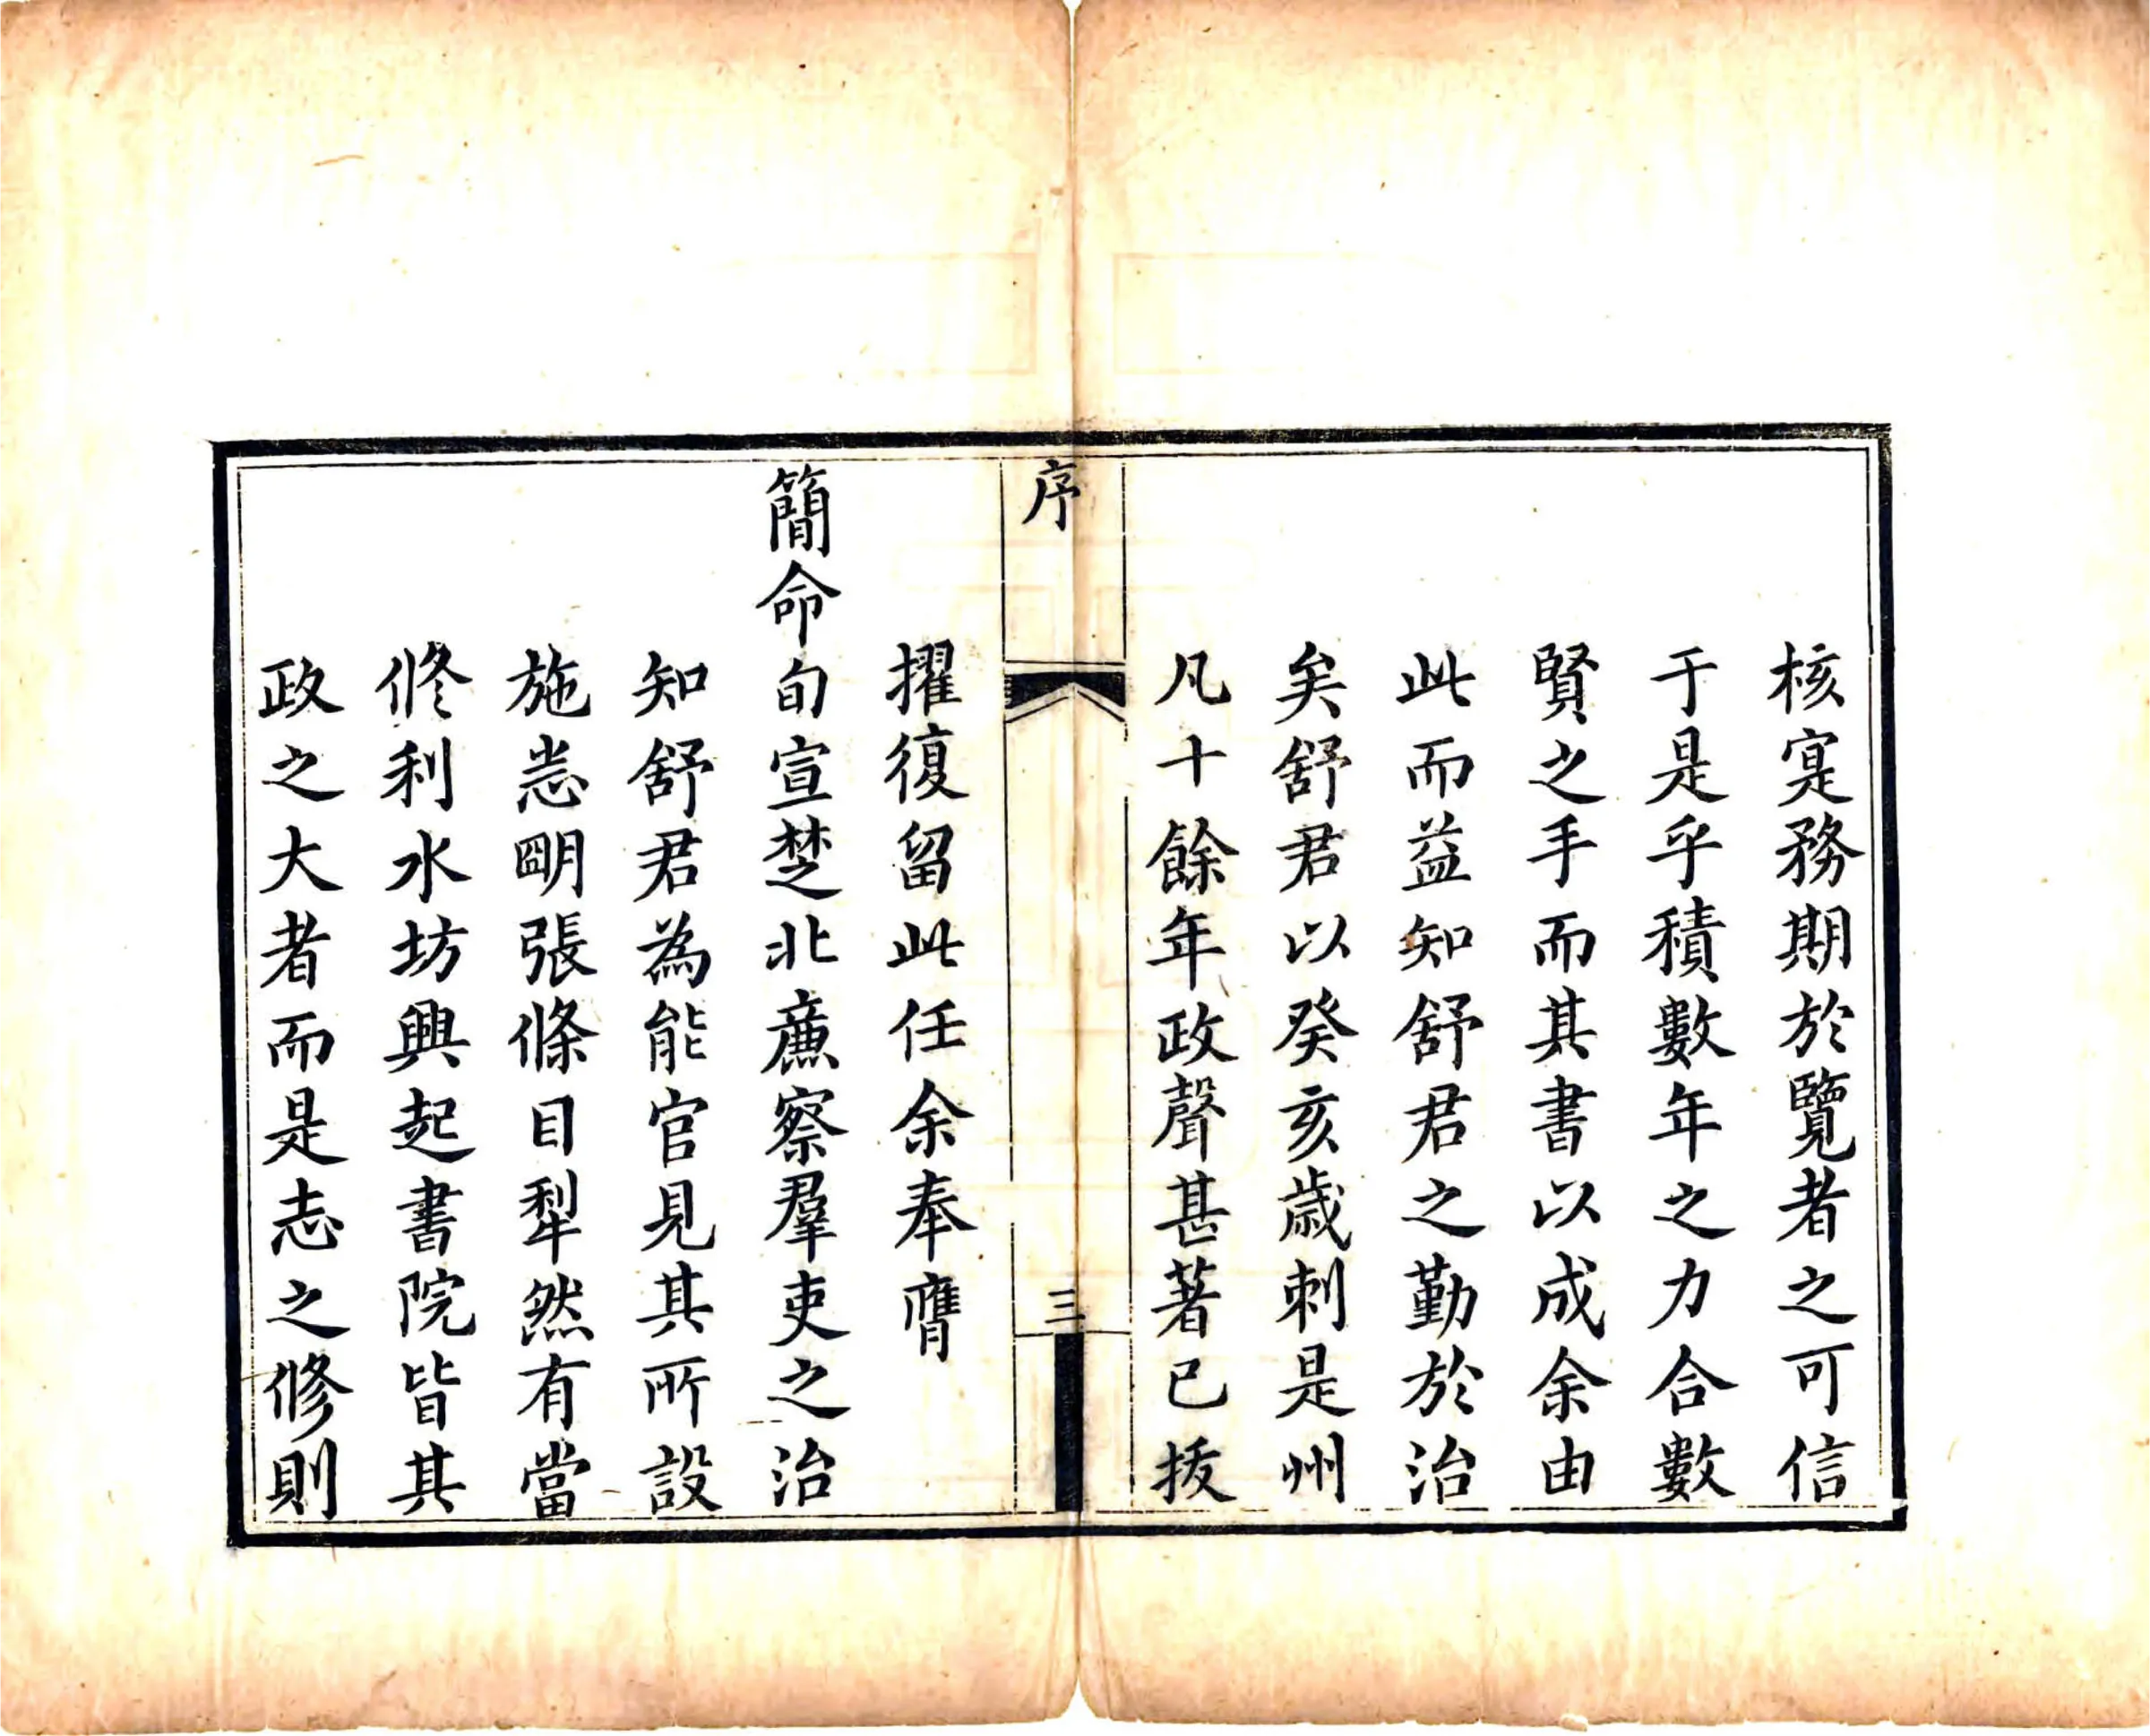 核寔務期於覽者之可信
于是乎積數年之力合數
賢之手而其書以成余由
此而益知舒君之勤於治
矣舒君以癸亥歲刺是州
凡十餘年政聲甚著已拔
序
三
擢復留此任余奉膺
簡命旬宣楚北廉察羣吏之治
知舒君為能官見其所設
施悉朙張條目犁然有當
修利水坊興起書院皆其
政之大者而是志之修則